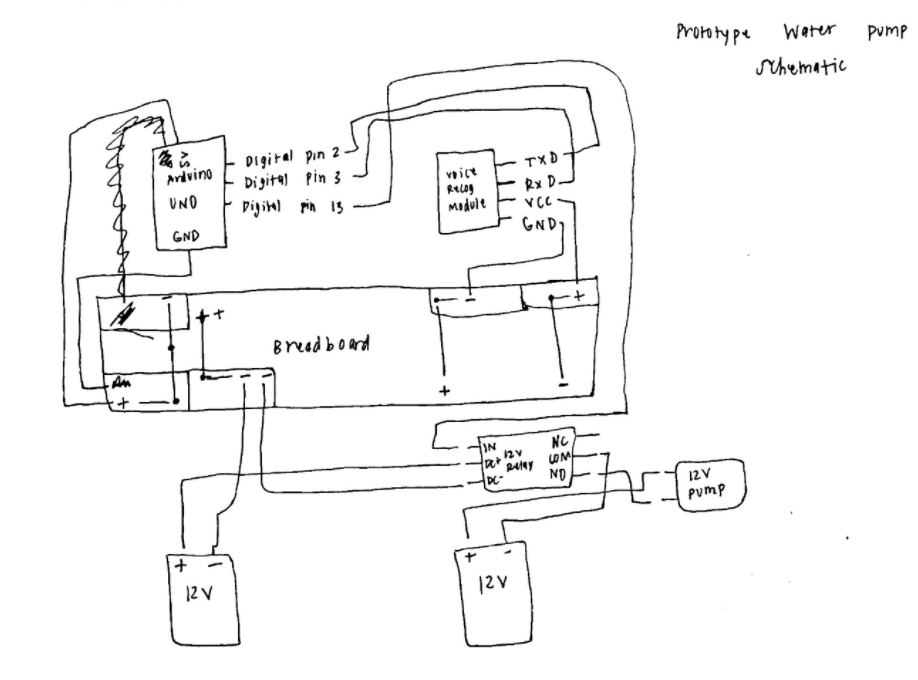 Prototype Water Pump
Schematic
5V
Arduino
UNO
GND
Digital pin 2
Digital pin 3
Digital pin 13
Voice
Recog
Module
TXD
RXD
VCC
GND
-
+
Breadboard
-
+
+
-
+
-
-
-
+
IN
DC+
DC-
12V
Relay
NC
COM
NO
12V
PUMP
+ -
12V
+ -
12V